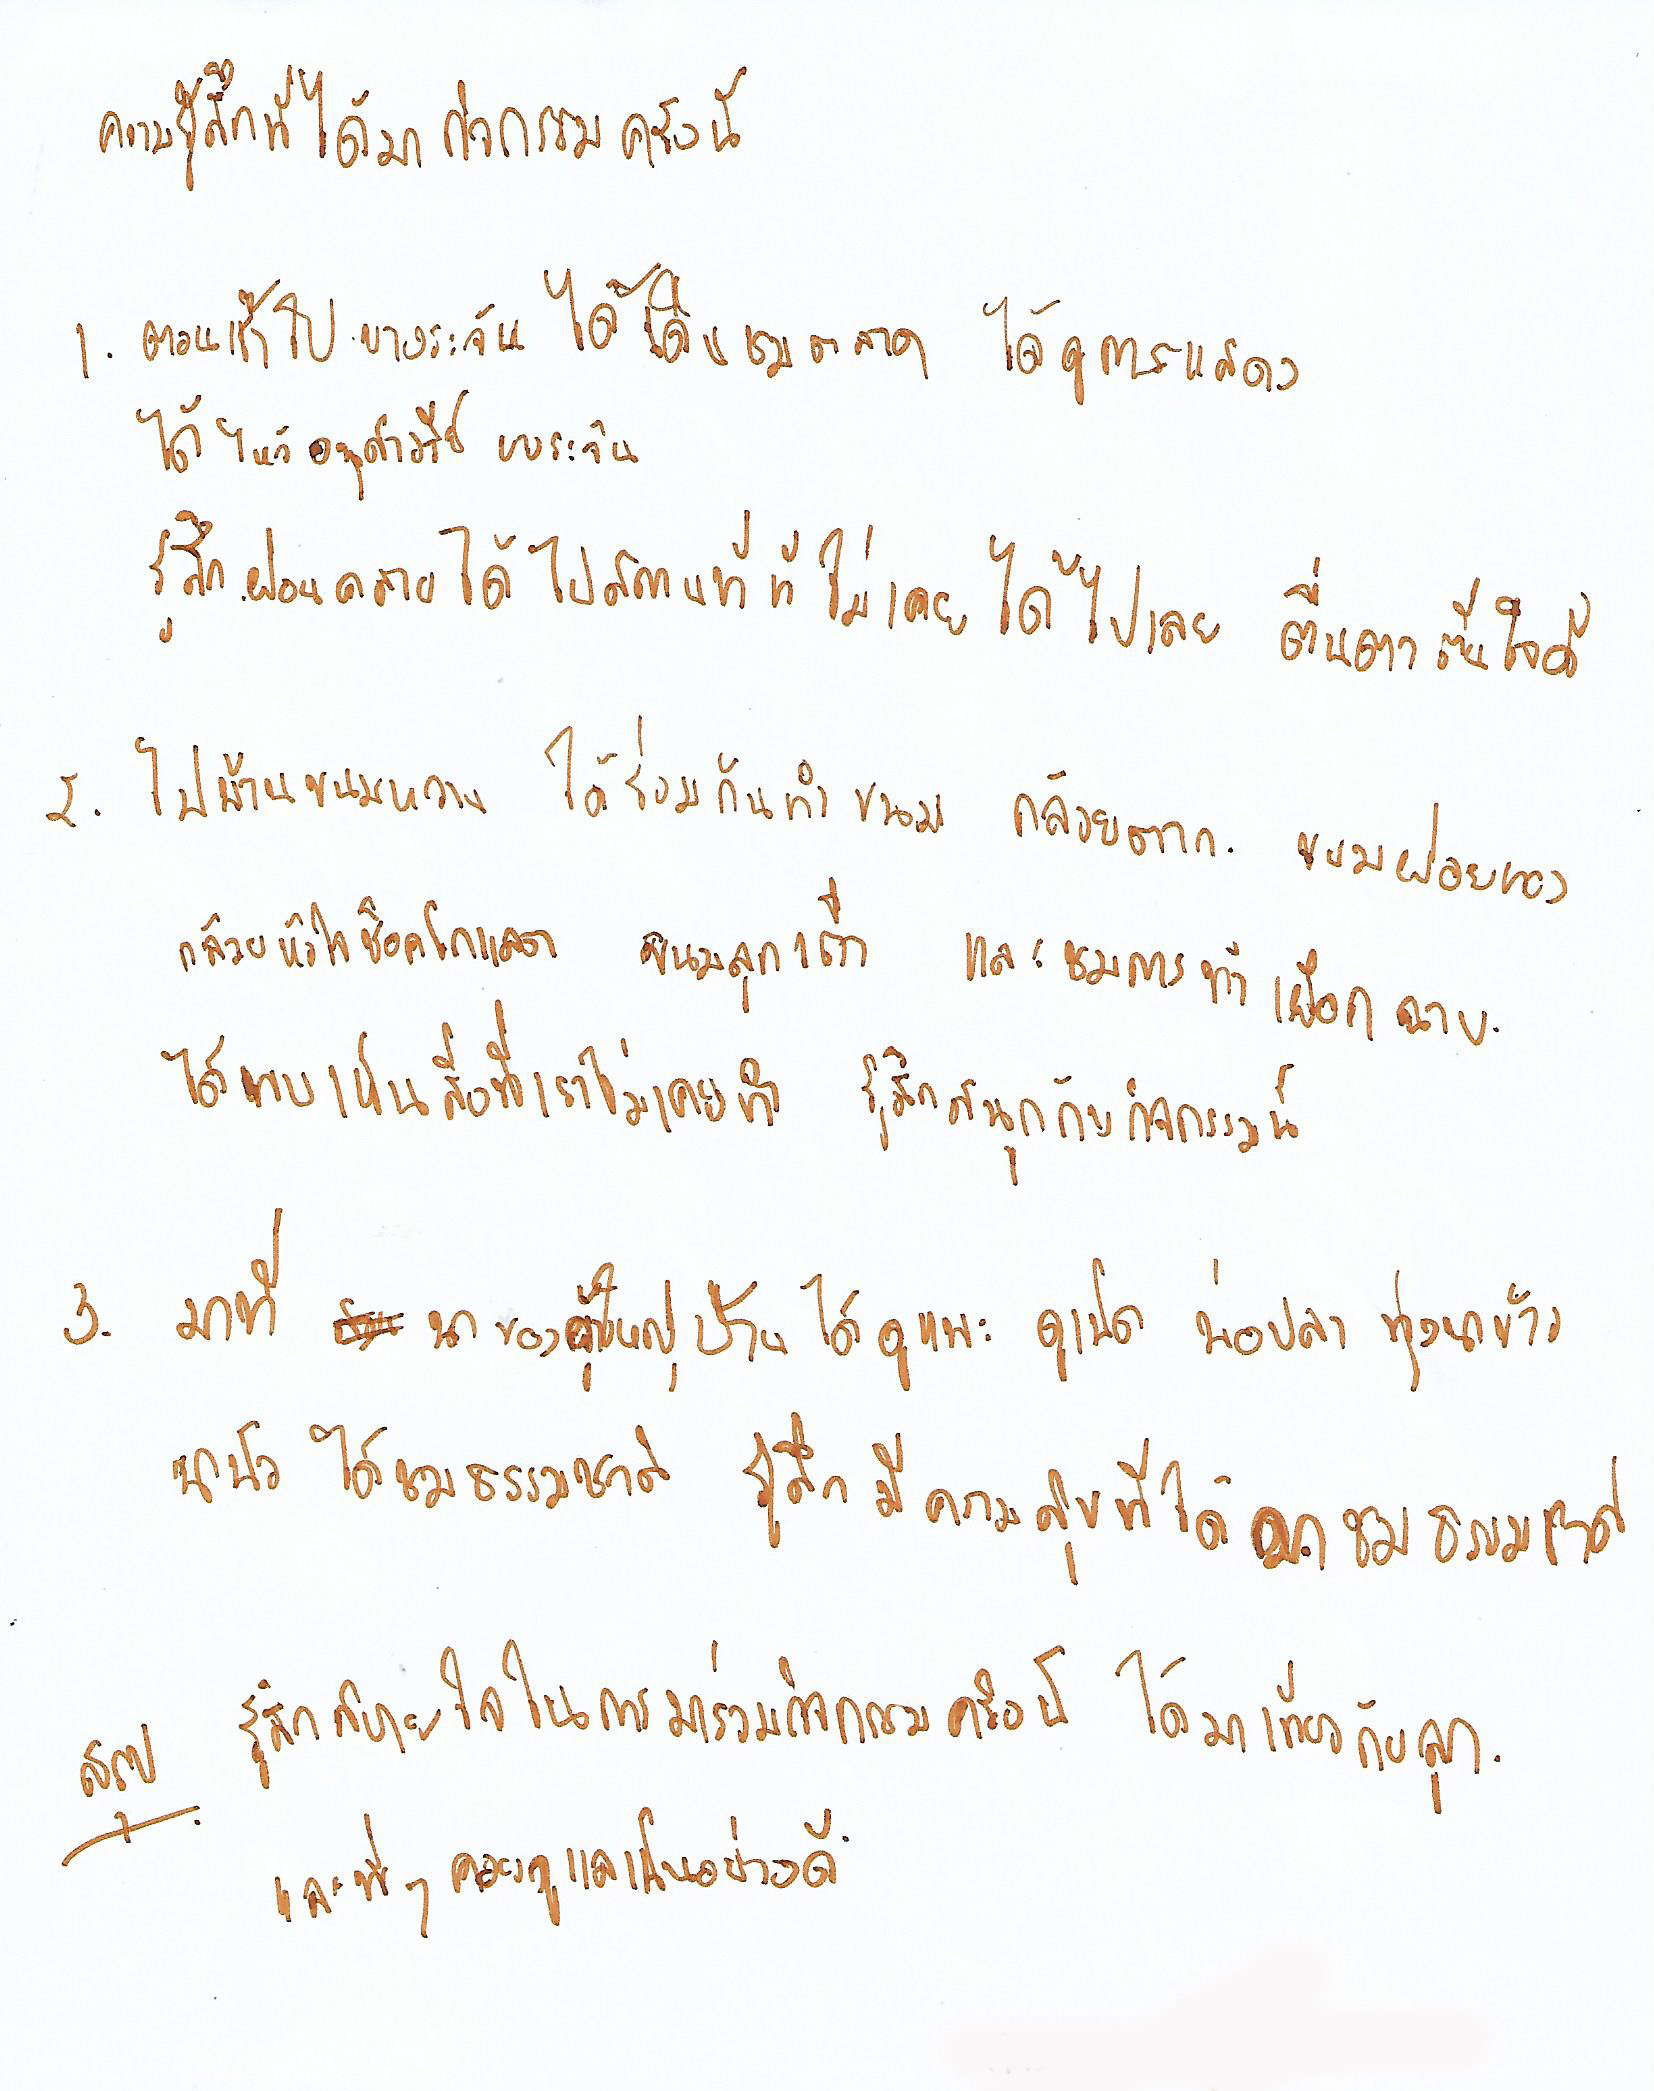 ความรู้สึกที่ได้มากิจกรรมครั้งนี้
1. ตอนเช้าไปบางระจัน ได้เดินชมตลาด ได้ดูการแสดง
ได้ไหว้อนุสาวรีย์ บางระจัน
รู้สึกผ่อนคลายได้ไปสถานที่ที่ไม่เคยได้ไปเลย ตื่นตาตื่นใจดี
2. ไปบ้านขนมหวาน ได้ร่วมกันทำขนม กล้วยตาก. ขนมฝอยทอง
กล้วยหัวใจช็อคโกแลต ขนมลูก และชมการทำเผือกฉาบ.
ได้พบเห็นสิ่งที่เราไม่เคยทำ รู้สึกสนุกกับกิจกรรมนี้
3. มาที่ นาของผู้ใหญ่บ้าน ได้ดูแพะ ดูเป็ด บ่อปลา ทุ่งนาข้าว
นาบัว ได้ชมธรรมชาติ รู้สึกมีความสุขที่ได้มาชมธรรมชาติ
สรุป รู้สึกสบายใจในการมาร่วมกิจกรรมครั้งนี้ ได้มาเที่ยวกับลูก.
และพี่ๆ คอยดูแลเป็นอย่างดี